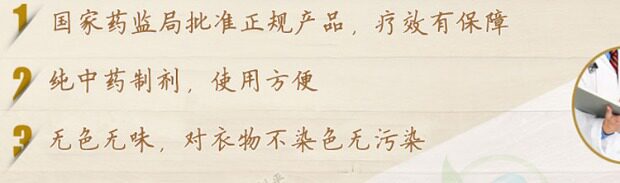 1 国家药监局批准正规产品，疗效有保障
2 纯中药制剂，使用方便
3 无色无味，对衣物不染色无污染